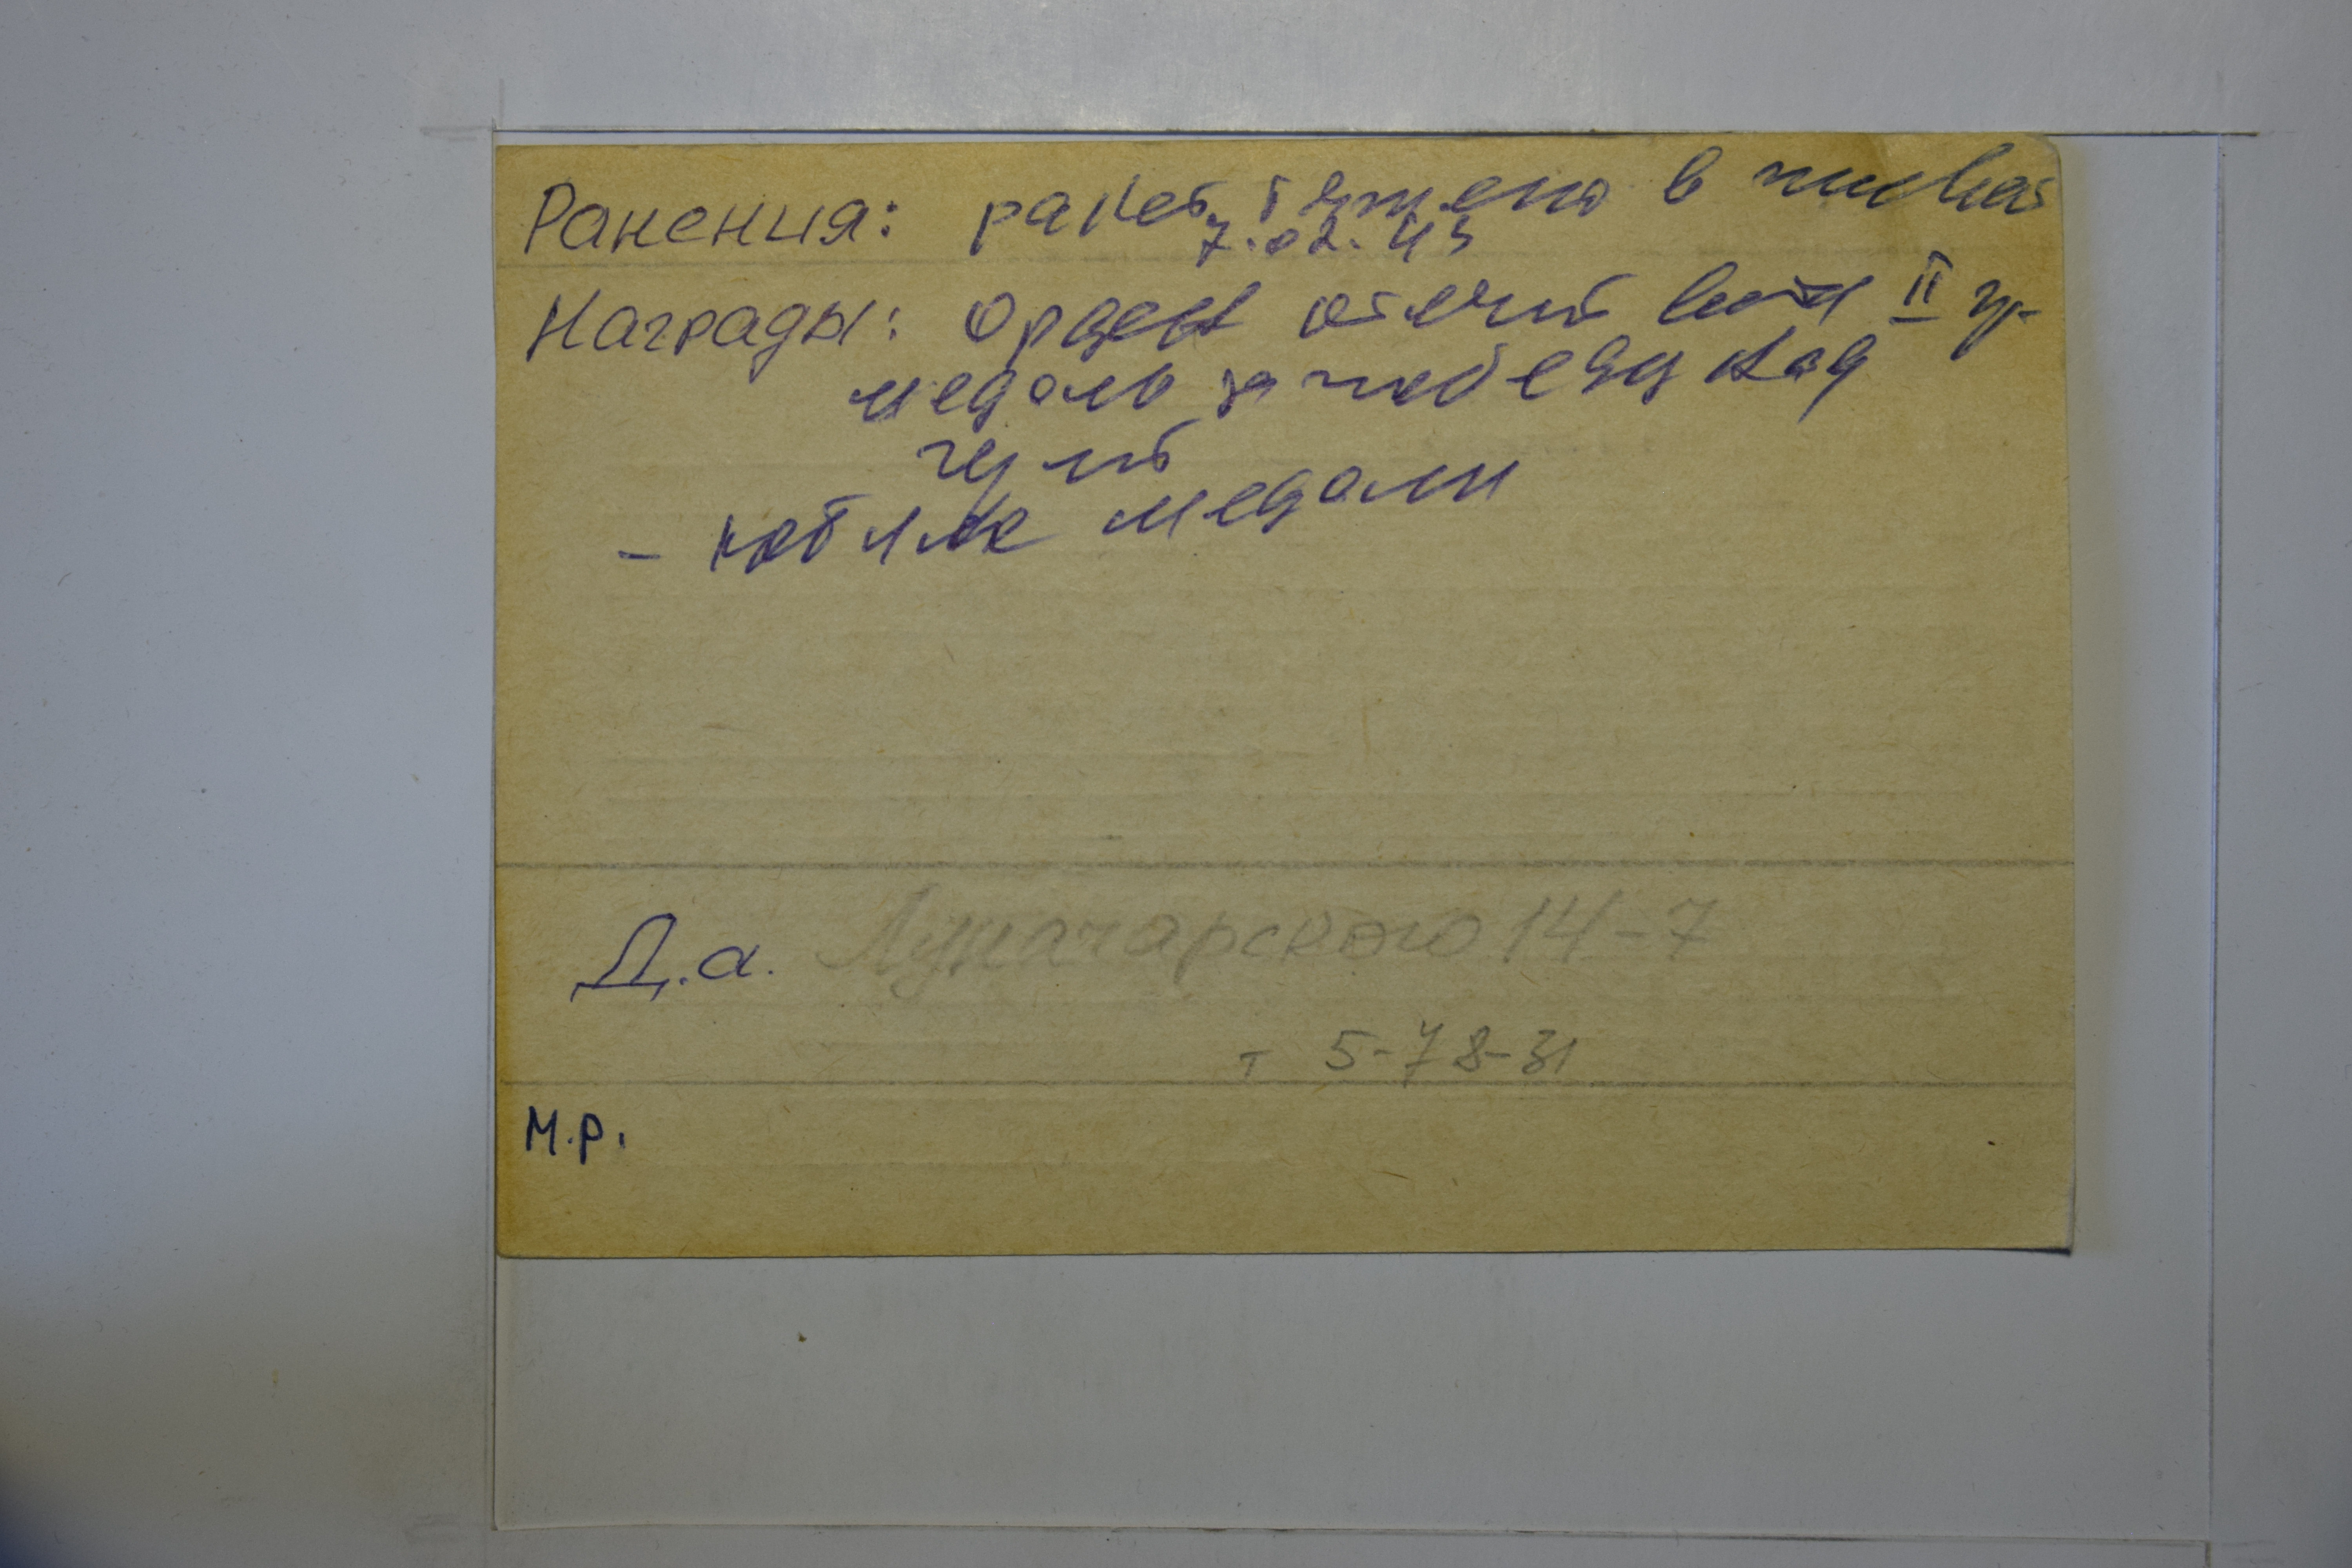 Ранения: ранен тяжело в
7.02.43
Награды: Орден отечест войн II гр-
медаль за победу над
герм
- юбил медали
Д.а. Луначарского 14-7
т 5-78-31
М.р.